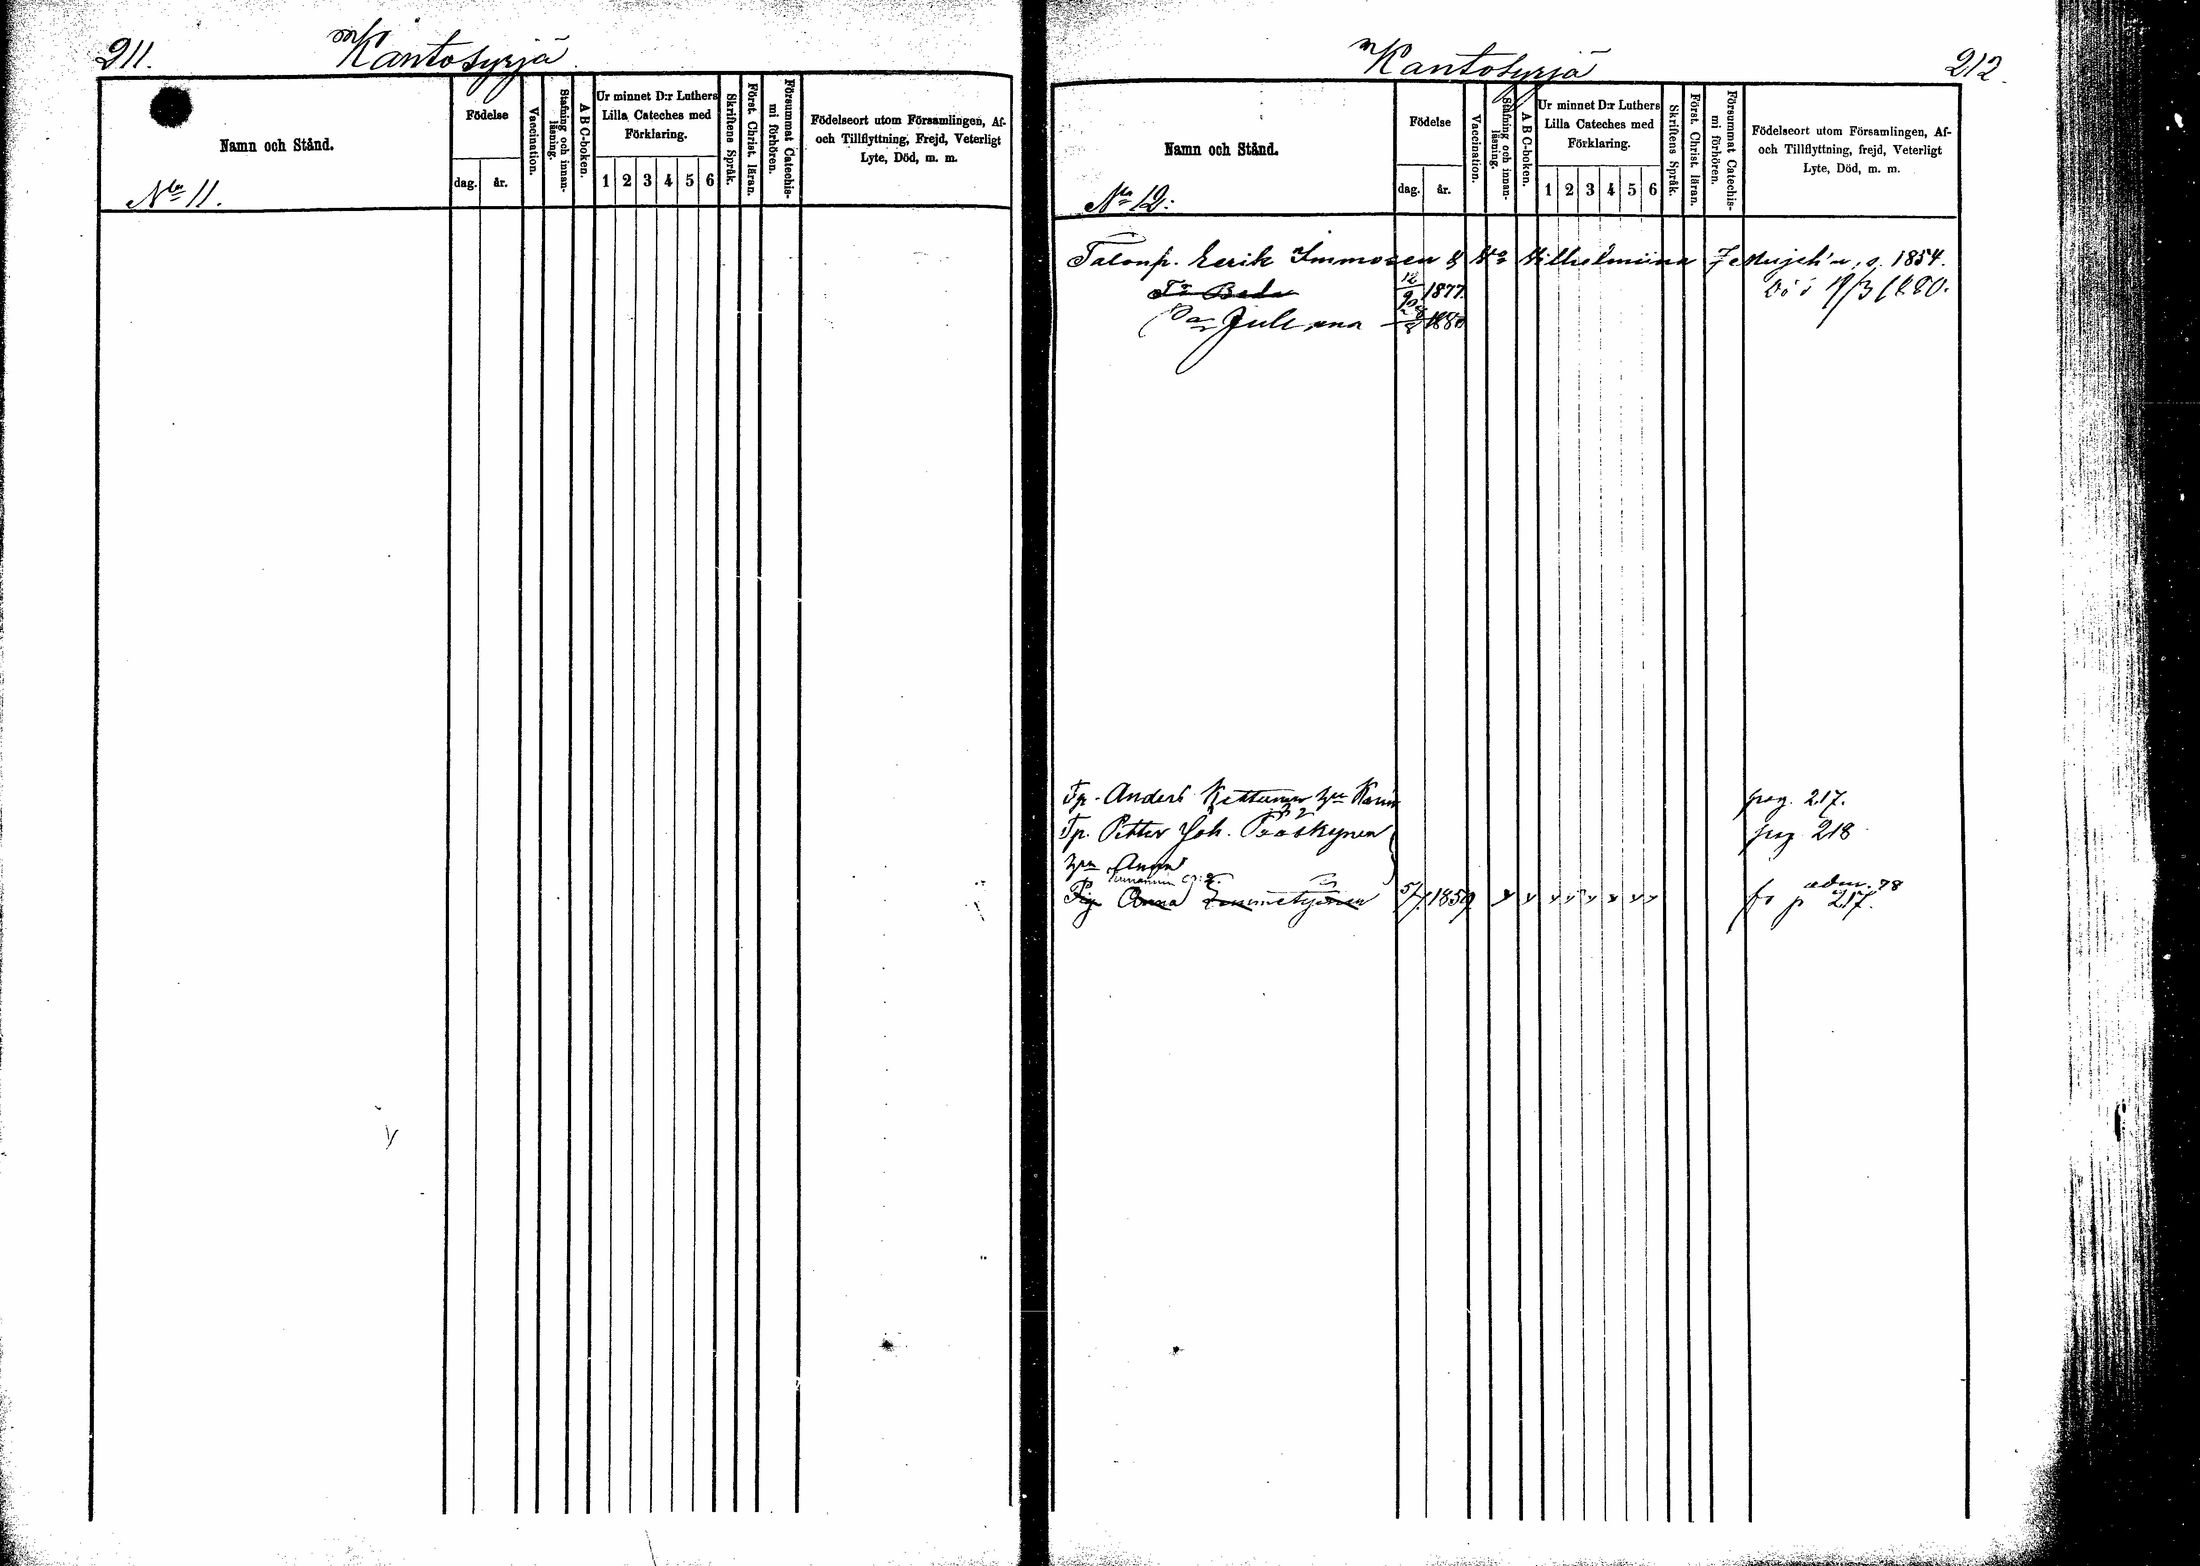 211.
Kantosyrjä
Namn och Stånd.
No 11.
Födelse
dag.
år.
Vaccination.
Stafning och innan-
läsning.
A B C-boken.
Ur minnet D:r Luthers
Lilla Cateches med
Förklaring.
1 2 3 4 5 6
Skriftens Språk.
Först. Christ. läran.
Försummat Catechis-
mi förhören.
Födelseort utom Församlingen, Af-
och Tillflyttning, Frejd, Veterligt
Lyte, Död, m. m.
Kantosyrjä
212.
Namn och Stånd.
No 12:
Födelse
dag.
år.
Vaccination.
Stafning och innan-
läsning.
A B C-boken.
Ur minnet D:r Luthers
Lilla Cateches med
Förklaring.
1 2 3 4 5 6
Skriftens Språk.
Först. Christ. läran.
Försummat Catechis-
mi förhören.
Födelseort utom Församlingen, Af-
och Tillflyttning, frejd, Veterligt
Lyte, Död, m. m.
Talonp. Eerik Immonen & Wilhelmiina s. 1854.
1877 19/3 1880.
1880
Tp. Anders Kettunen hu Karin pag. 217.
Tp. Petter Joh. pag 218
hu Anna
Pig Anna 5/7 1859 adm. 78
p 217.